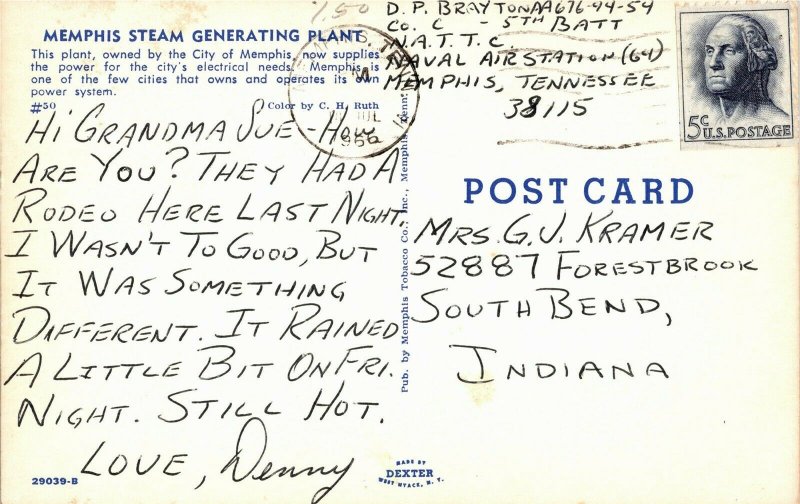 MEMPHIS STEAM GENERATING PLANT
This plant, owned by the City of Memphis, now supplies
the power for the city's electrical needs. Memphis is
one of the few cities that owns and operates its own
power system.
#50
Color by C. H. Ruth
HI GRANDMA SUE - HOW
ARE YOU? THEY HAD A
RODEO HERE LAST NIGHT.
I WASN'T TO GOOD, BUT
IT WAS SOMETHING
DIFFERENT. IT RAINED
A LITTLE BIT ON FRI.
NIGHT. STILL HOT.
LOVE, Denny
29039-B
1.50
MEMPHIS, TENN.
JUL
1966
Pub. by Memphis Tobacco Co., Inc., Memphis, Tenn.
D. P. BRAYTON AA 676-94-54
CO. C - 5TH BATT
N.A.T.T.C.
NAVAL AIR STATION (64)
MEMPHIS, TENNESSEE
38115
5c
U.S. POSTAGE
POST CARD
MRS. G. J. KRAMER
52887 FORESTBROOK
SOUTH BEND,
INDIANA
MADE BY
DEXTER
WEST NYACK, N. Y.